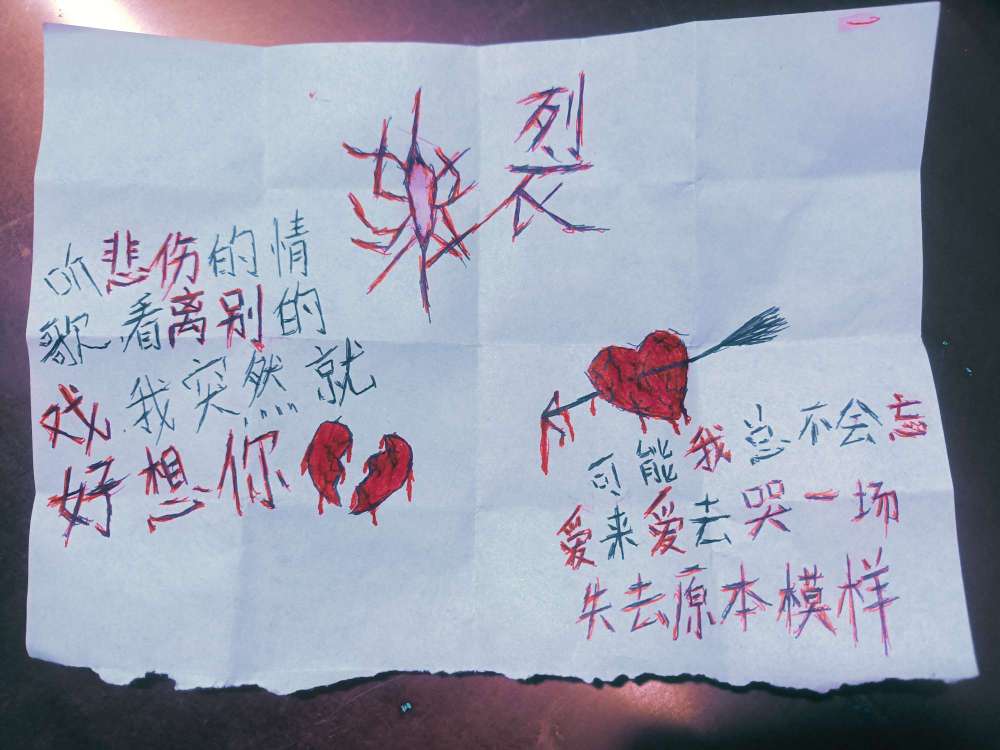 裂
听悲伤的情
歌.看离别的
戏.我突然就
好想你
可能我总不会忘
爱来爱去哭一场
失去原本模样